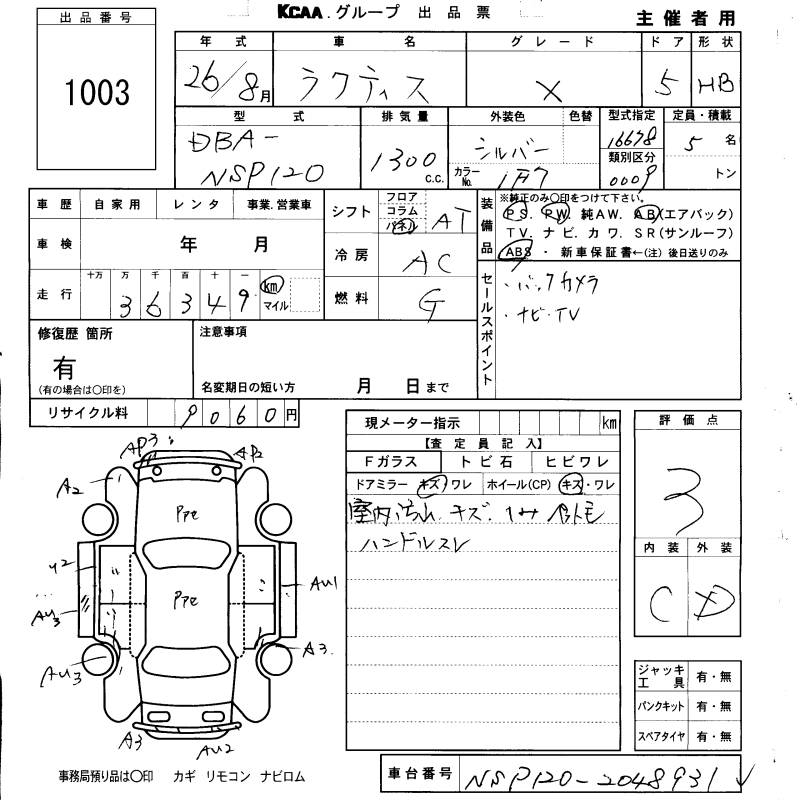 KCAA.グループ 出品票
主催者用
出品番号
1003
年式 車名 グレード ドア 形状
26/8月 ラクティス X 5 HB
型式 排気量 外装色 色替 型式指定 定員・積載
DBA-
NSP120
1300 c.c.
シルバー
カラーNo. 1F7
16678
類別区分
0009
5名
トン
車歴 自家用 レンタ 事業.営業車
車検 年 月
走行 十万 万 千 百 十 一
36349 km
マイル
シフト フロア
コラム
パネル
AT
冷房 AC
燃料 G
装備品
※純正のみ〇印をつけて下さい。
PS. PW. 純AW. AB(エアバック)
TV. ナビ. カワ. SR(サンルーフ)
ABS ・ 新車保証書←(注) 後日送りのみ
セールスポイント
・バックカメラ
・ナビ・TV
修復歴 箇所
有
(有の場合は〇印を)
注意事項
名変期日の短い方 月 日まで
リサイクル料 9060円
現メーター指示 km
【査定員記入】
Fガラス トビ石 ヒビワレ
ドアミラー キズ/ワレ ホイール(CP) キズ・ワレ
室内汚れ.キズ.
ハンドルスレ
評価点
3
内装 外装
C D
AP3
AP2
A2
PPe
Y2
AU3
AU1
PPe
AU3
A3
A3
AU2
ジャッキ工具 有・無
パンクキット 有・無
スペアタイヤ 有・無
事務局預り品は〇印 カギ リモコン ナビロム
車台番号 NSP120-2048931